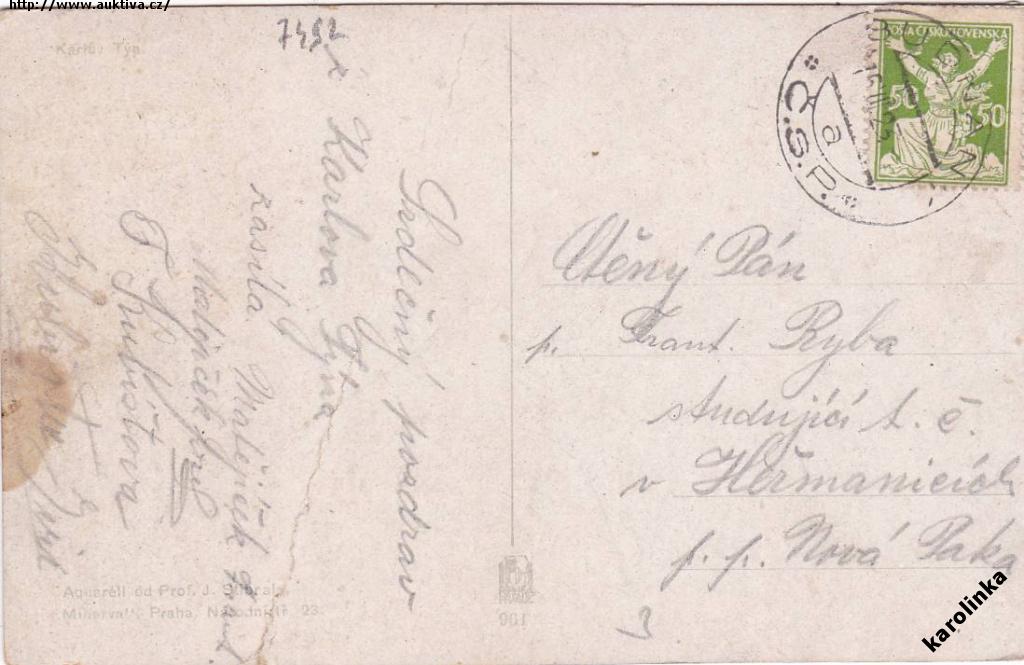 http://www.auktiva.cz/
Karlův Týn.
7452
Srdečný pozdrav
z Karlova Týna
zasílá Matějíček
Matějíček
F
POŠTA ČESKOSLOVENSKÁ
50 50
a
Č.S.P.
Ctěný Pán
p. Frant. Ryba
studující t. č.
v Heřmanicích
p. p. Nová Paka
Aquarell od Prof. J.
Minerva, Praha, Národní tř. 23.
901
3
karolinka